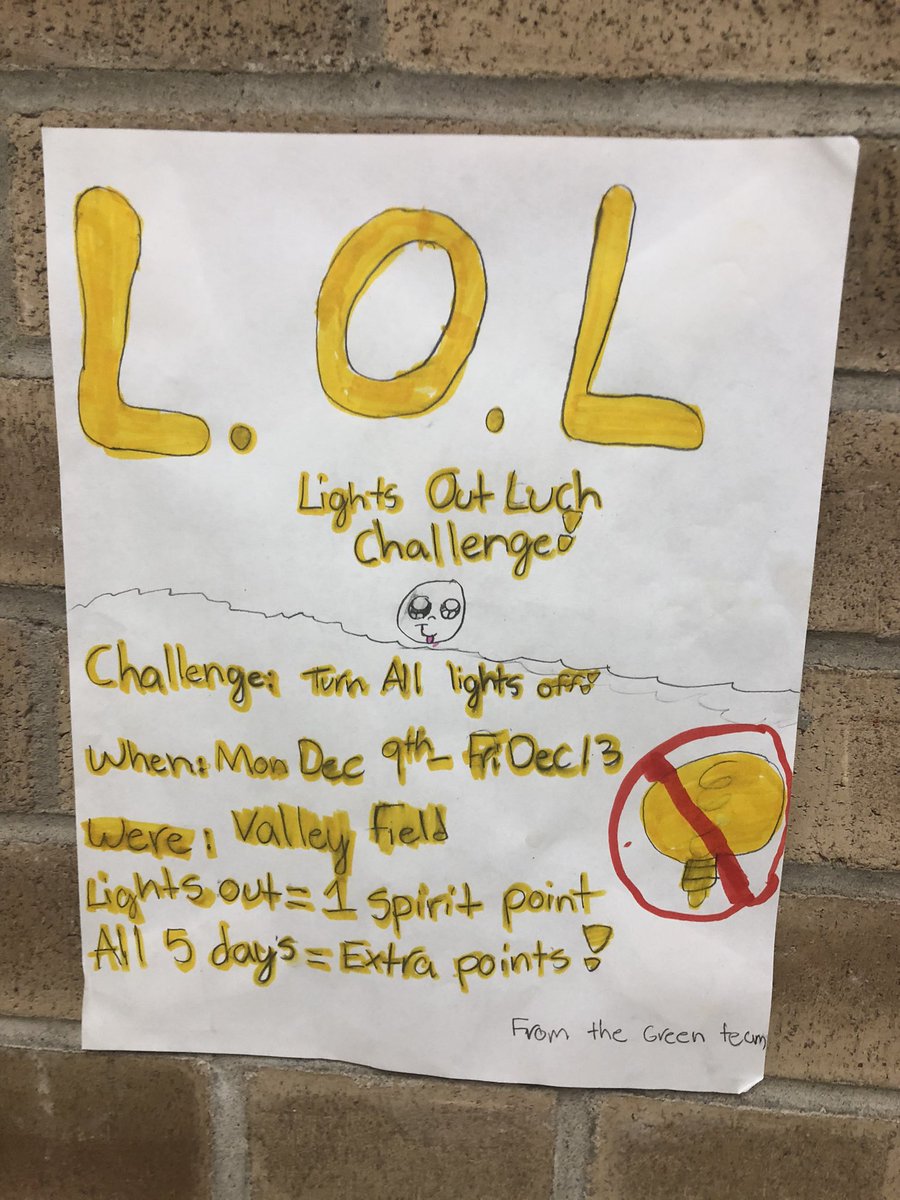 L.O.L
Lights Out Luch
Challenge!
Challenge: Turn All lights off!
When: Mon Dec 9th - Fri Dec 13
Were: Valley Field
Lights out = 1 Spirit point
All 5 days = Extra points!
From the Green team